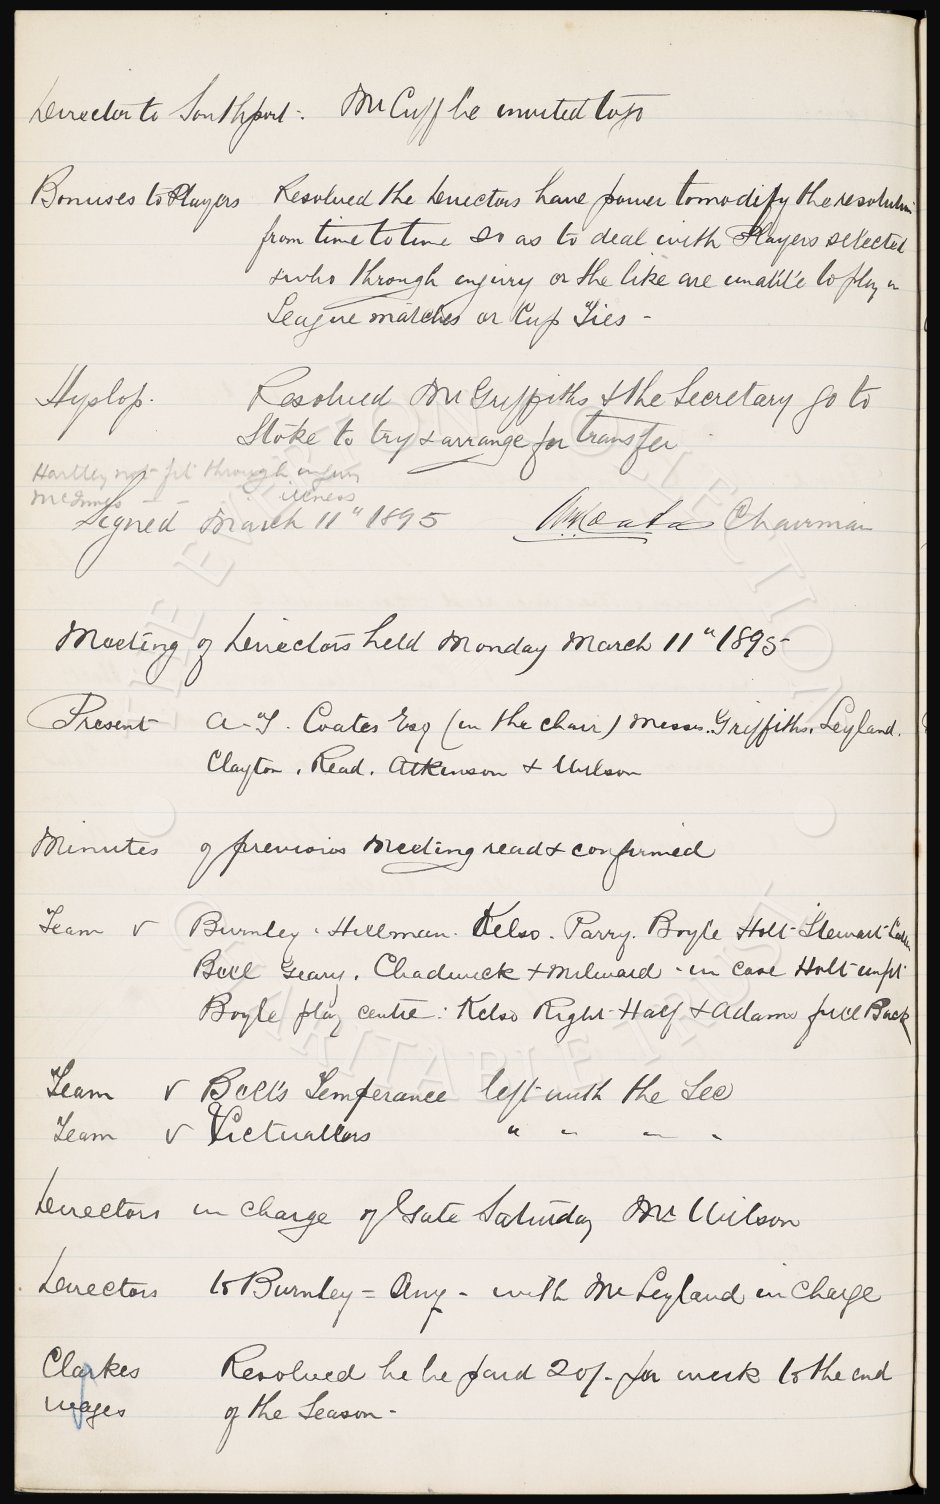 Director to Southport:. Mr Cuff be invited to go
Bonuses to Players Resolved the Directors have power to modify the resolution
from time to time so as to deal with Players selected
& who through injury or the like are unable to play in
League matches or Cup Ties -
Hyslop. Resolved Mr Griffiths & the Secretary go to
Stoke to try & arrange for transfer
Hartley not fit through injury
McInnes - - illness
Signed March 11" 1895 Chairman
Meeting of Directors held Monday March 11" 1895
Present A. T. Coates Esq (in the chair) Messrs. Griffiths. Leyland.
Clayton. Read. Atkinson & Wilson
Minutes of previous Meeting read & confirmed
Team v Burnley. Hillman. Kelso. Parry. Boyle Holt Stewart Latta
Bell Geary. Chadwick & Milward - in case Holt unfit
Boyle play centre: Kelso Right Half & Adams full Back
Team v Bell's Temperance left with the Sec
Team v Victuallers " " " "
Directors in charge of Gate Saturday Mr Wilson
Directors to Burnley = Any - with Mr Leyland in charge
Clarkes Resolved he be paid 20/- per week to the end
wages of the Season -
THE EVERTON COLLECTION
CHARITABLE TRUST